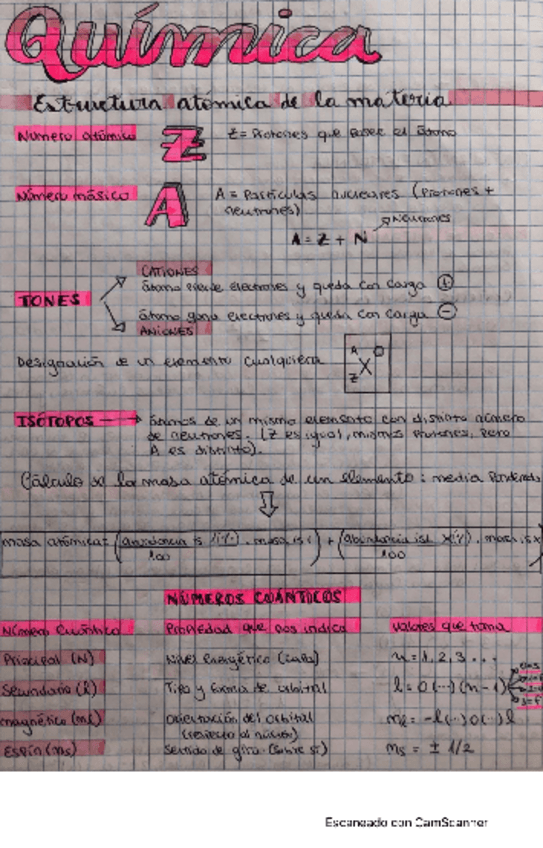 Química
Estructura atómica de la materia
Número atómico Z Z = Protones que posee el átomo
Número másico A A = Partículas nucleares (Protones +
neutrones)
Neutrones
A = Z + N
CATIONES
átomo pierde electrones y queda con carga +
IONES
átomo gana electrones y queda con carga -
ANIONES
Designación de un elemento cualquiera A Z X
ISÓTOPOS → átomos de un mismo elemento con distinto número
de neutrones. (Z es igual, mismos protones, pero
A es distinto).
Cálculo de la masa atómica de un elemento: media
masa atómica = (abundancia is 1(%) · masa is 1 / 100) + (abundancia ist X(%) · masa is x / 100)
NÚMEROS CUÁNTICOS
Número Cuántico Propiedad que nos indica valores que toma
Principal (N) Nivel Energético (capa) n = 1, 2, 3 ...
Secundario (l) Tipo y forma de orbital l = 0 (··) (n - 1)
magnético (ml) Orientación del orbital
(respecto al núcleo) ml = -l (··) 0 (··) l
Espín (ms) Sentido de giro (sobre sí) ms = ± 1/2
Escaneado con CamScanner